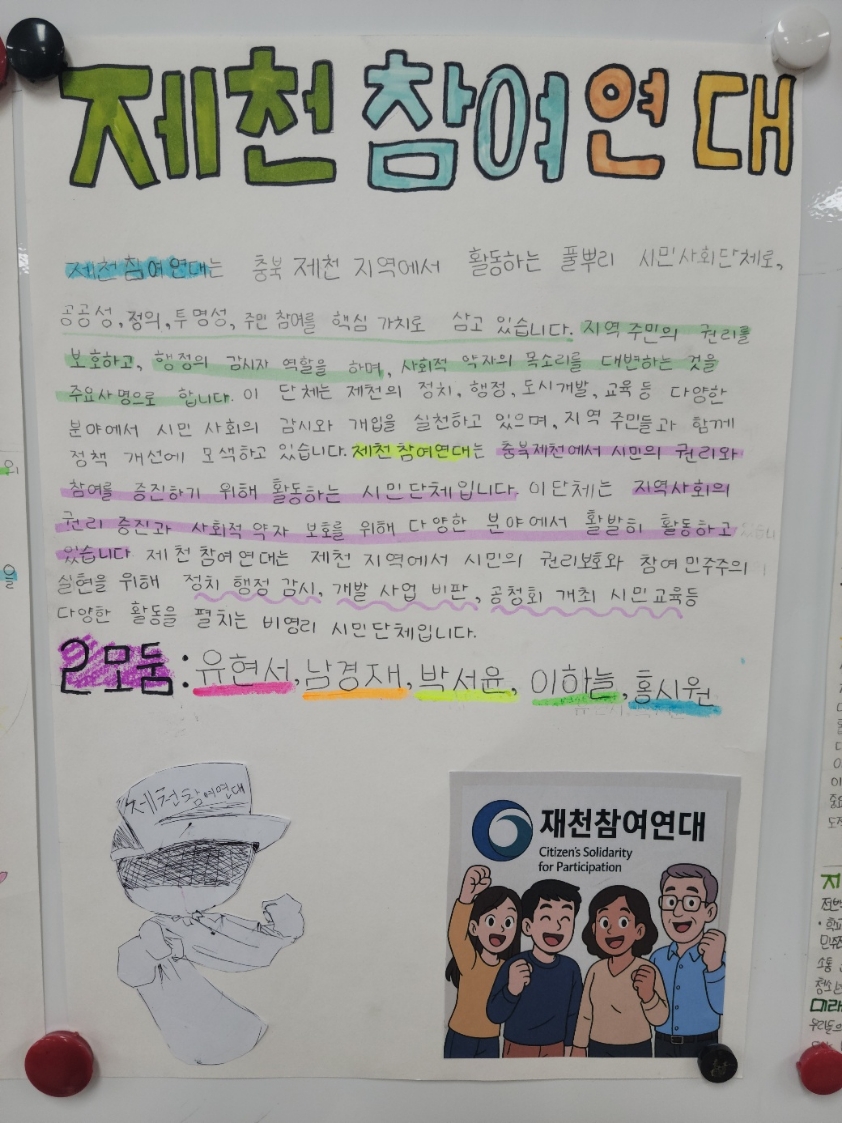 제천참여연대
제천참여연대는 충북 제천 지역에서 활동하는 풀뿌리 시민사회단체로,
공공성, 정의, 투명성, 주민 참여를 핵심 가치로 삼고 있습니다. 지역 주민의 권리를
보호하고, 행정의 감시자 역할을 하며, 사회적 약자의 목소리를 대변하는 것을
주요사명으로 합니다. 이 단체는 제천의 정치, 행정, 도시개발, 교육 등 다양한
분야에서 시민 사회의 감시와 개입을 실천하고 있으며, 지역 주민들과 함께
정책 개선에 모색하고 있습니다. 제천참여연대는 충북제천에서 시민의 권리와
참여를 증진하기 위해 활동하는 시민단체입니다. 이단체는 지역사회의
권리 증진과 사회적 약자 보호를 위해 다양한 분야에서 활발히 활동하고
있습니다 제천참여연대는 제천 지역에서 시민의 권리보호와 참여민주주의
실현을 위해 정치 행정 감시, 개발 사업 비판, 공청회 개최 시민교육등
다양한 활동을 펼치는 비영리 시민단체입니다.
2모둠: 유현서, 남경재, 박서윤, 이하늘, 홍시원
제천참여연대
재천참여연대
Citizen's Solidarity
for Participation